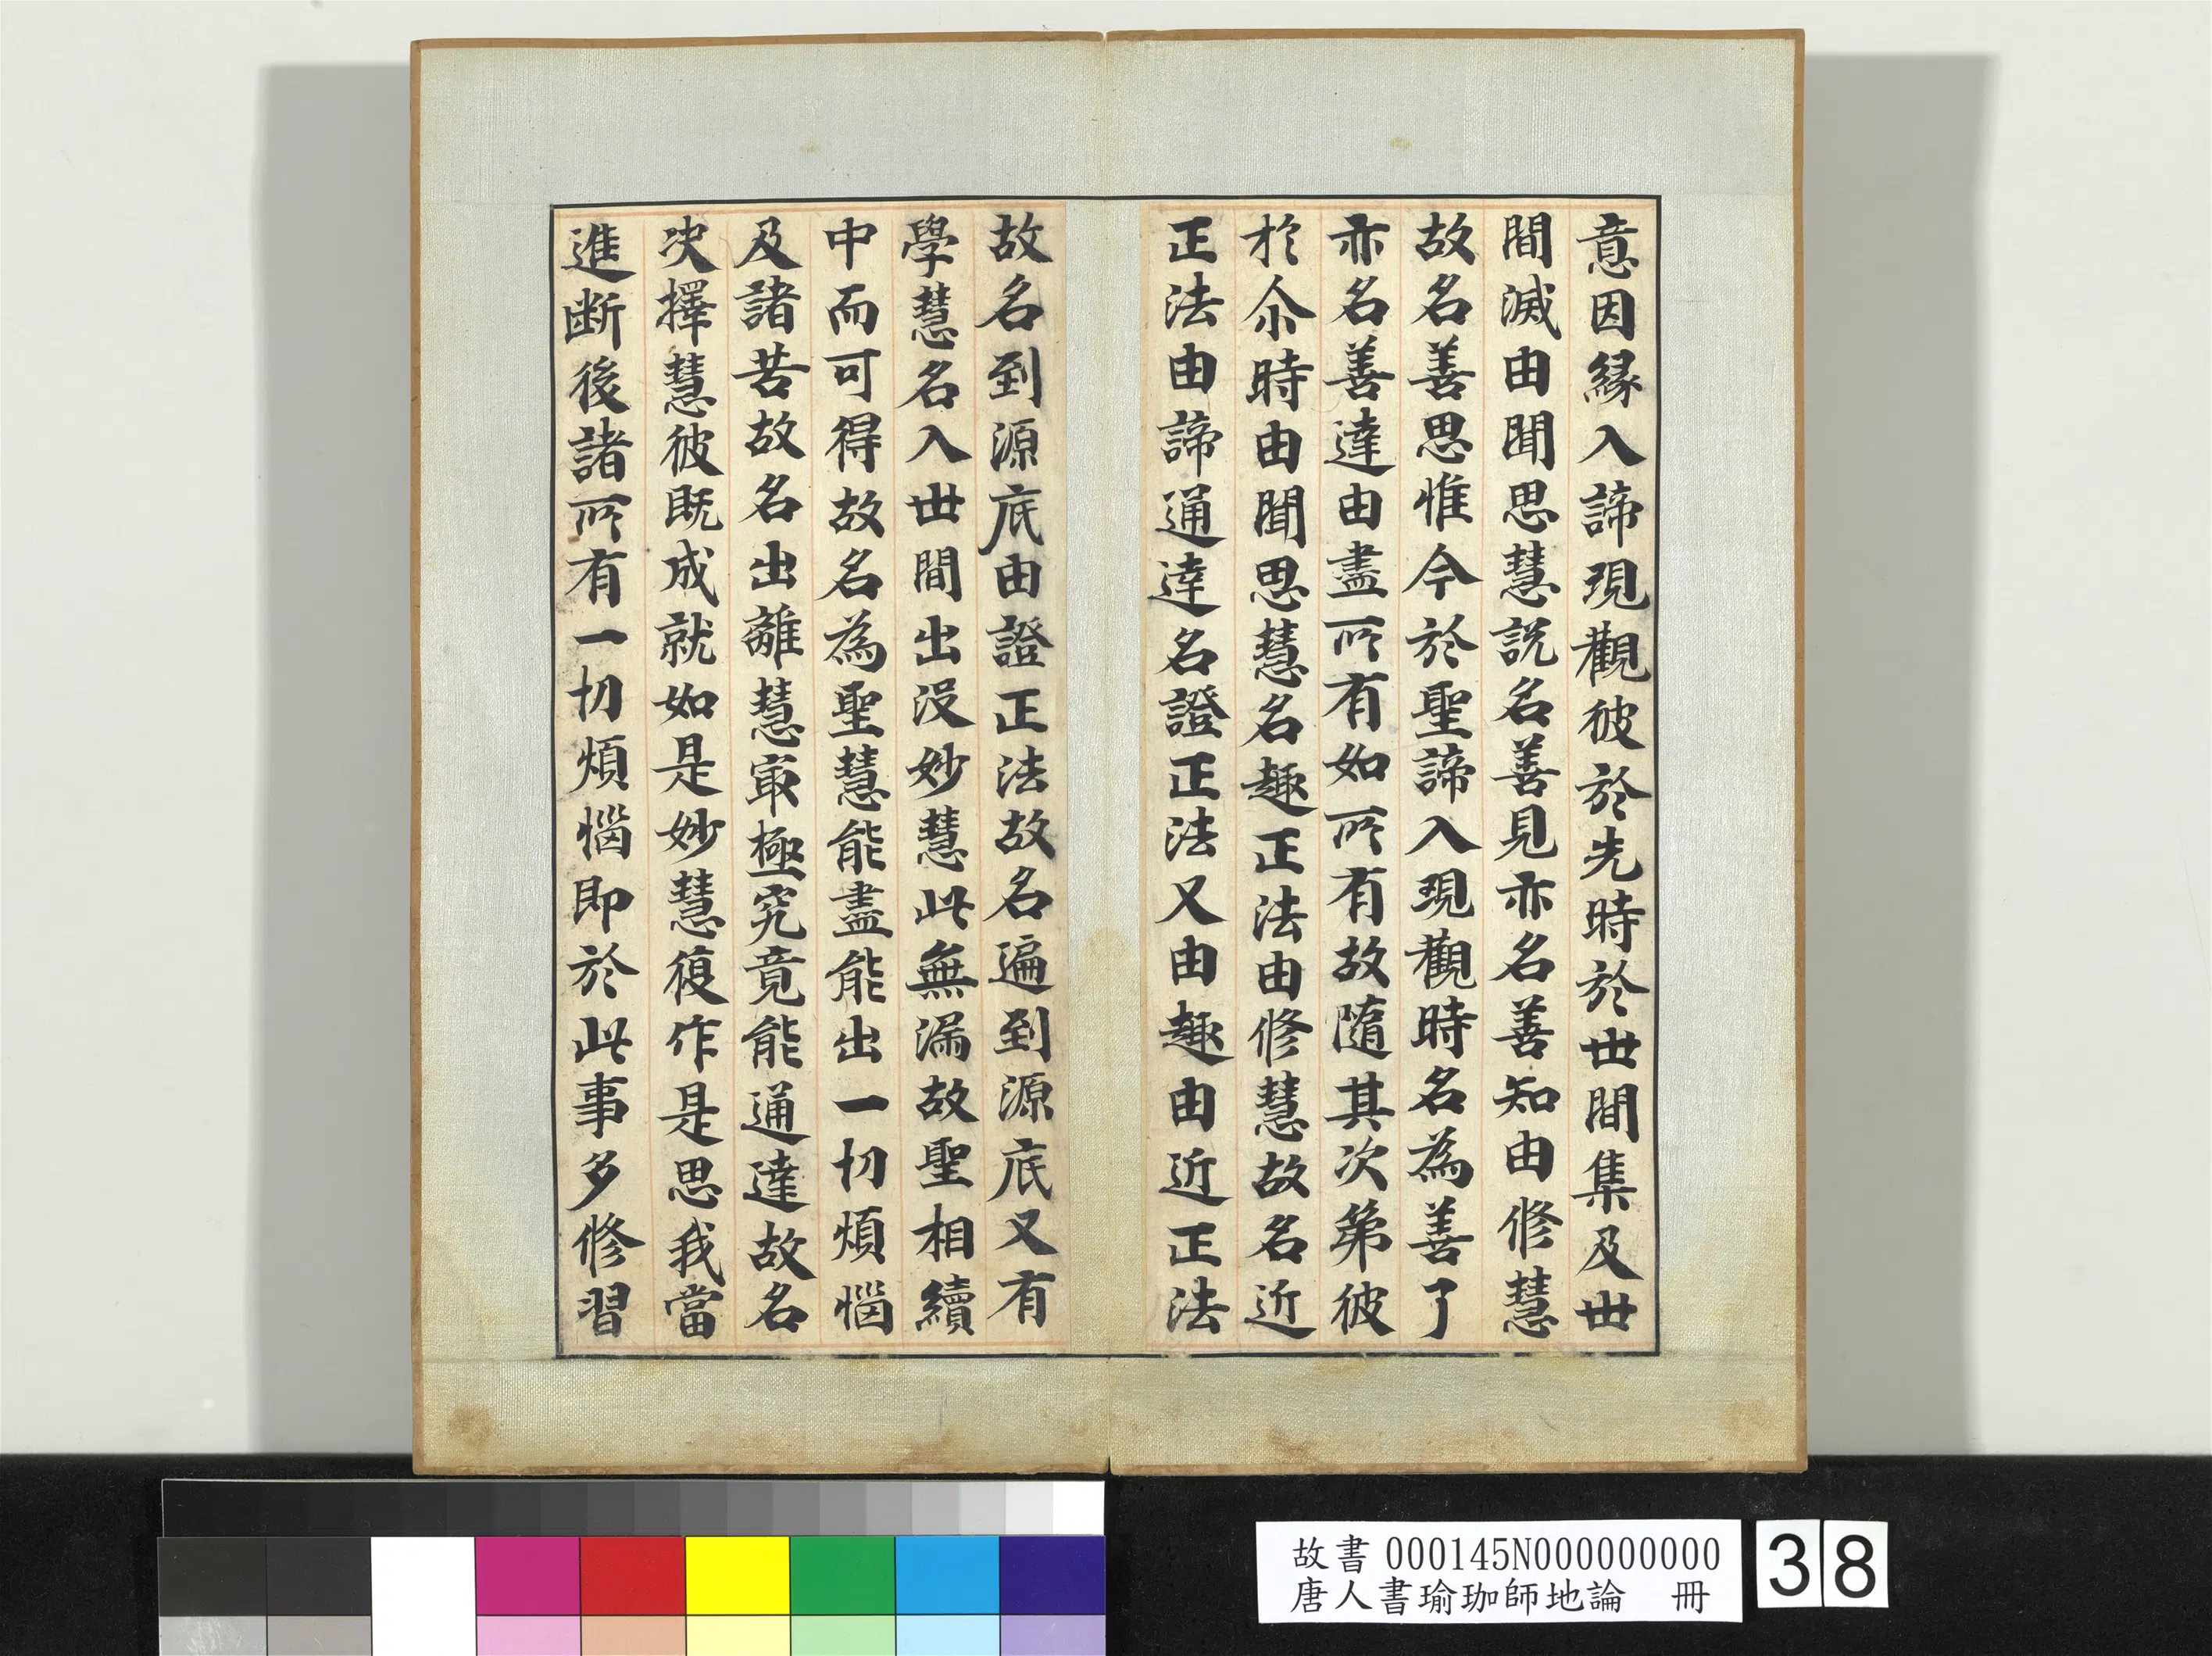 意因縁入諦現觀彼於先時於丗間集及丗
間滅由聞思慧説名善見亦名善知由修慧
故名善思惟今於聖諦入現觀時名為善了
亦名善達由盡所有如所有故隨其次第彼
於尒時由聞思慧名趣正法由修慧故名近
正法由諦通達名證正法又由趣由近正法
故名到源底由證正法故名遍到源底又有
學慧名入丗間出没妙慧此無漏故聖相續
中而可得故名為聖慧能盡能出一切煩惱
及諸苦故名出離慧冣極究竟能通達故名
决擇慧彼既成就如是妙慧復作是思我當
進断後諸所有一切煩惱即於此事多修習
故書 000145N000000000
唐人書瑜珈師地論 冊
38